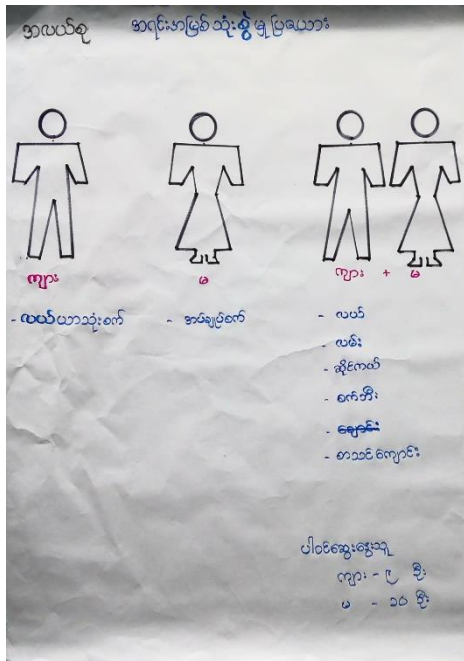 အလယ်စု အရင်းအမြစ်သုံးစွဲမှုပြဇယား
ကျား
မ
ကျား + မ
- လယ်ယာသုံးစက်
- အပ်ချုပ်စက်
- လယ်
- လမ်း
- ဆိုင်ကယ်
- စက်ဘီး
- ချောင်း
- စာသင်ကျောင်း
ပါဝင်ဆွေးနွေးသူ
ကျား - ၉ ဦး
မ - ၁၀ ဦး